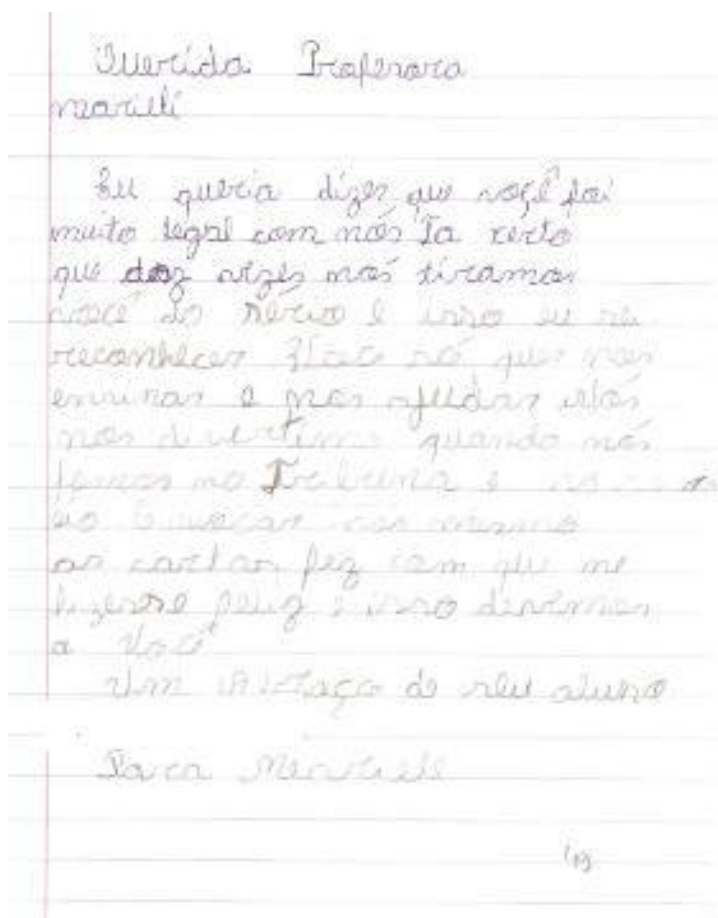 Querida Professora
marieli
Eu queria dizer que voçê foi
muito legal com nós Ta certo
que daz vezes nos tiramos
você do nervo e isso eu
reconhecer você só quer nos
ensinar e nos ajudar
nos divertimos quando nós
fomos no Tribuna e
ao
as cartas fez com que me
fizesse feliz e isso devemos
a você
Um abraço do seu aluno
Para
(19)